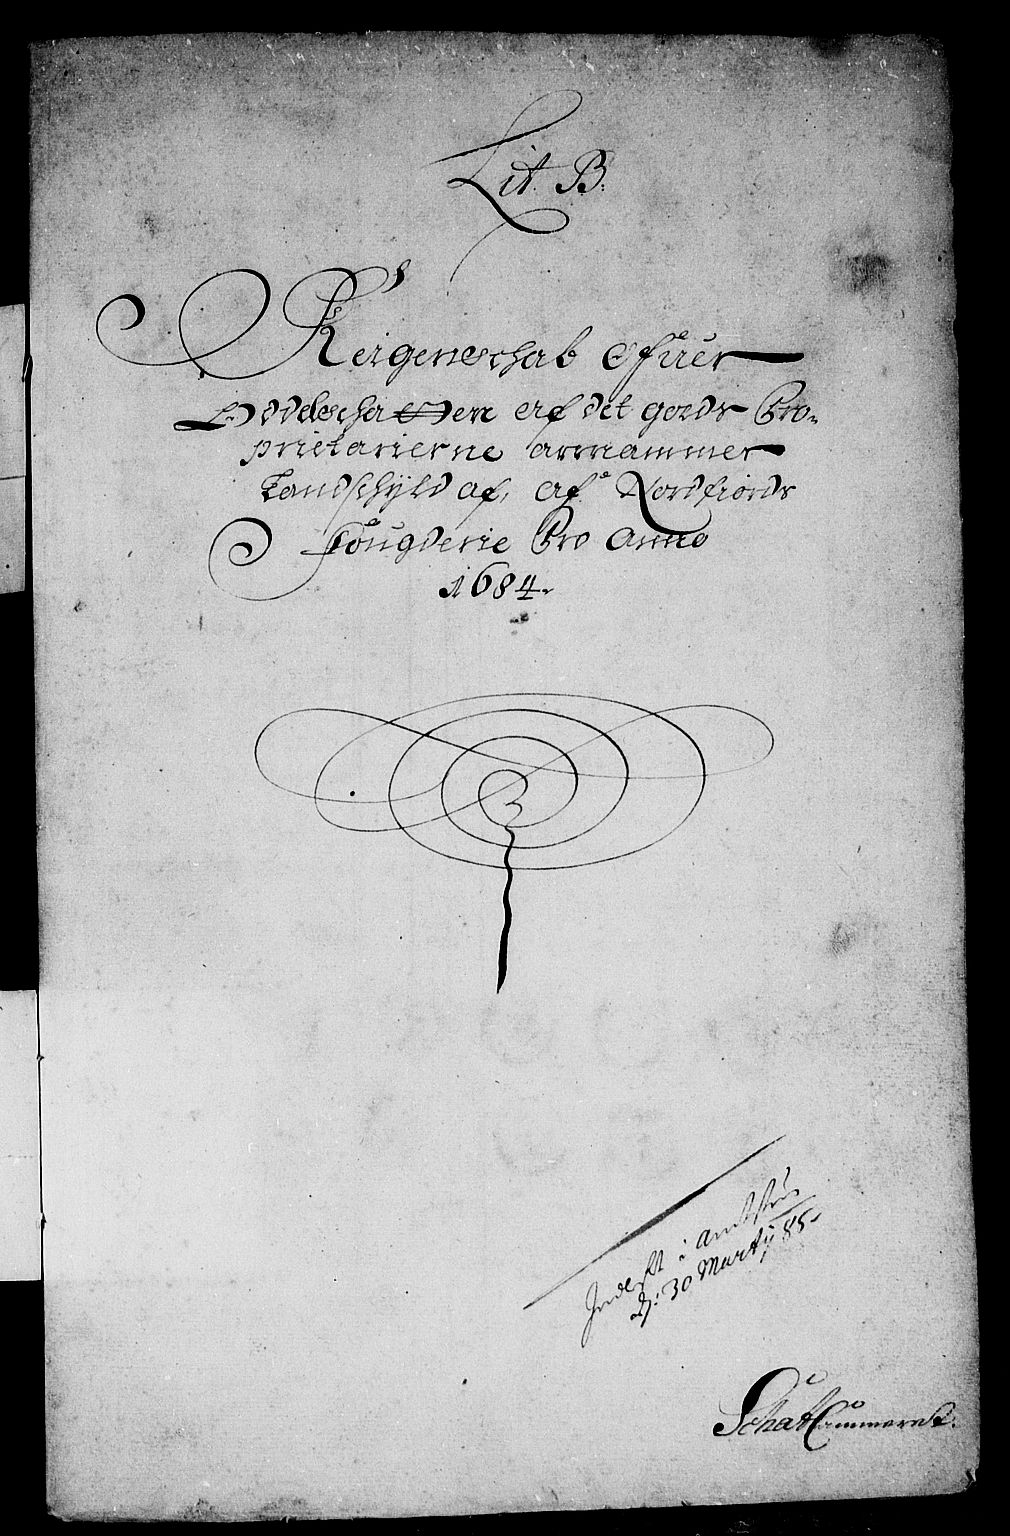 Lit. B:
Reigenschab Ofuer
Oddelscha##en af det gords Pro-
prietarierne annammer
Landschÿld af, af Nordfiords
Fougderie Pro Anno
1684.
Indlest i Amtstu
d: 30 Martÿ 85.
SchatCammeret.